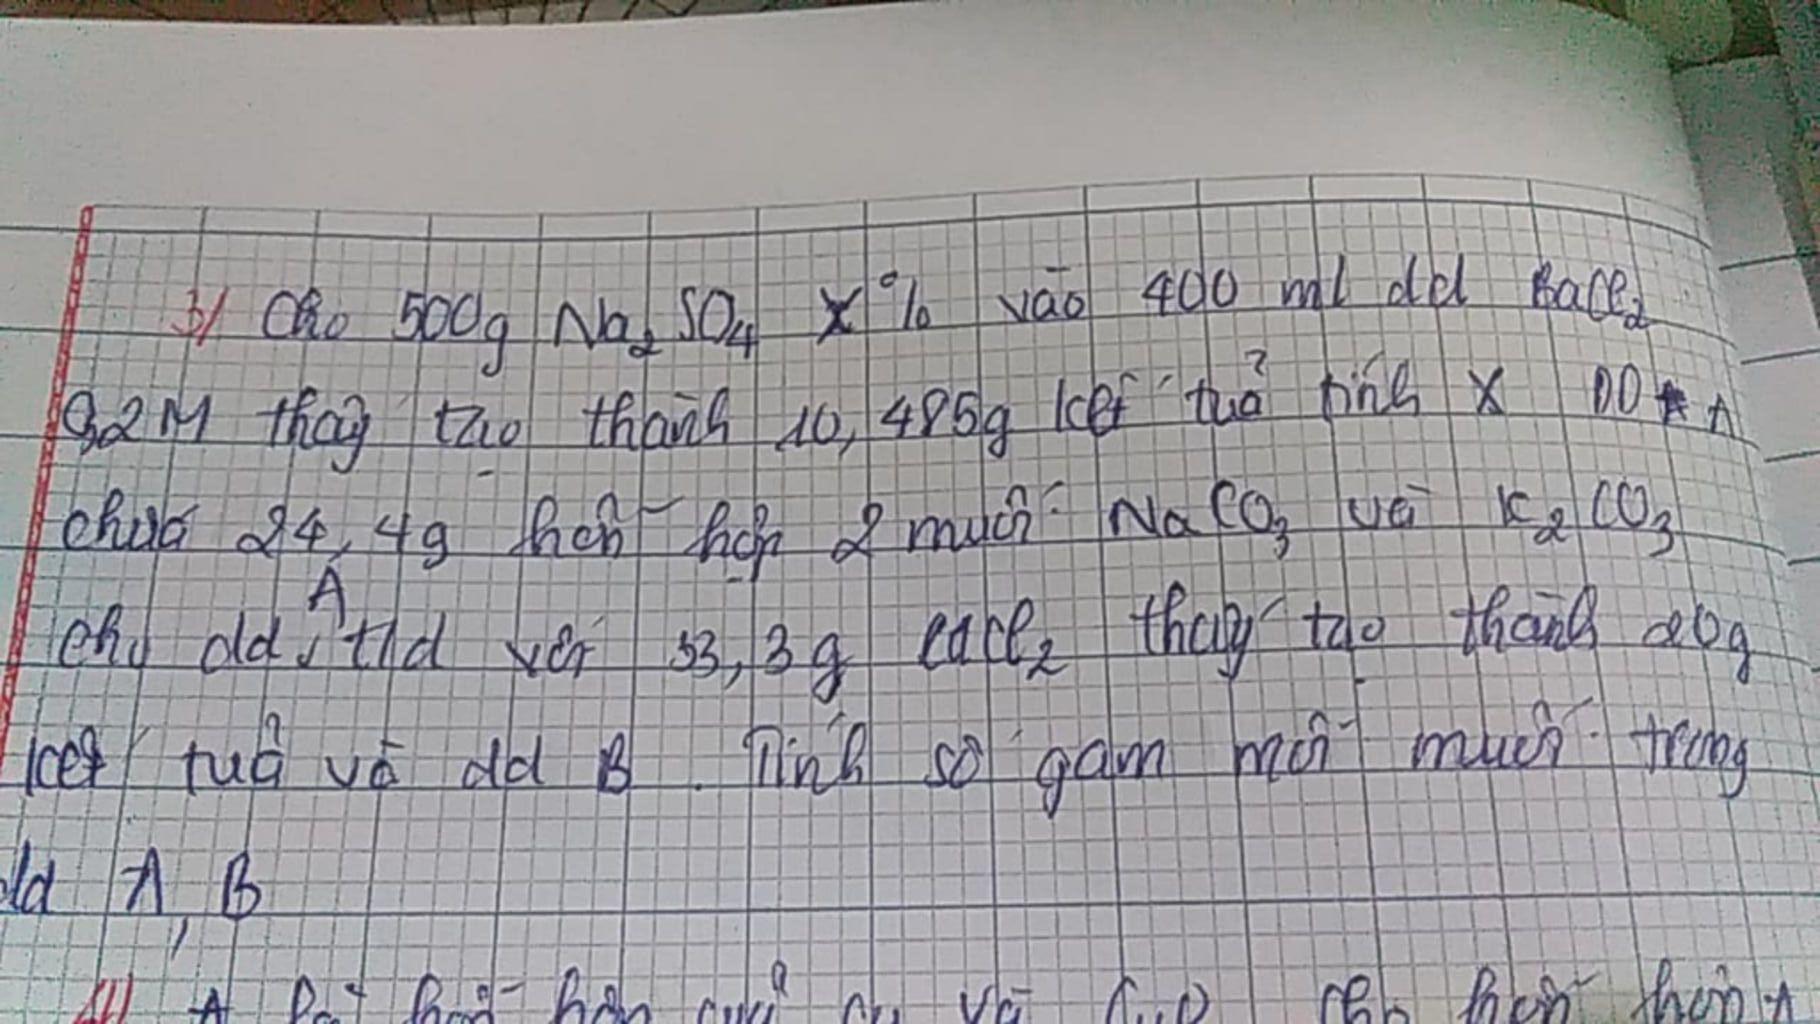 3/ Cho 500g Na2SO4 x% vào 400 ml dd BaCl2
0,2M thấy tạo thành 10,485g kết tuả tính x DD A
chứa 24,4g hỗn hợp 2 muối NaCO3 và K2CO3
cho dd A t/d với 33,3g CaCl2 thấy tạo thành 20g
kết tuả và dd B. Tính số gam mỗi muối trong
dd A, B